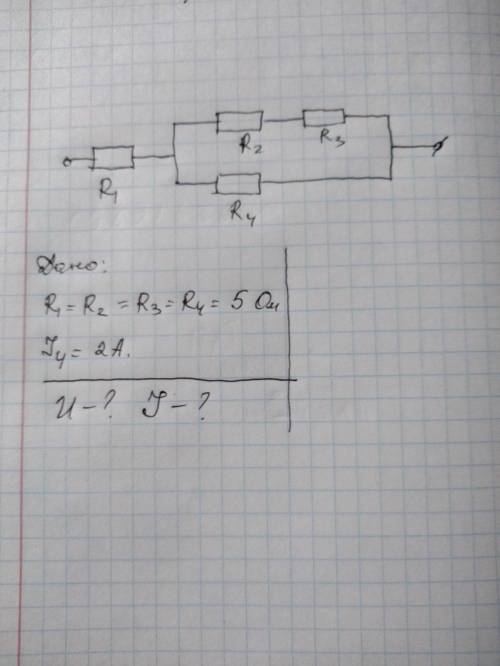 R₂ R₃
R₁
R₄
Дано:
R₁ = R₂ = R₃ = R₄ = 5 Ом
I₄ = 2А.
U – ? I – ?